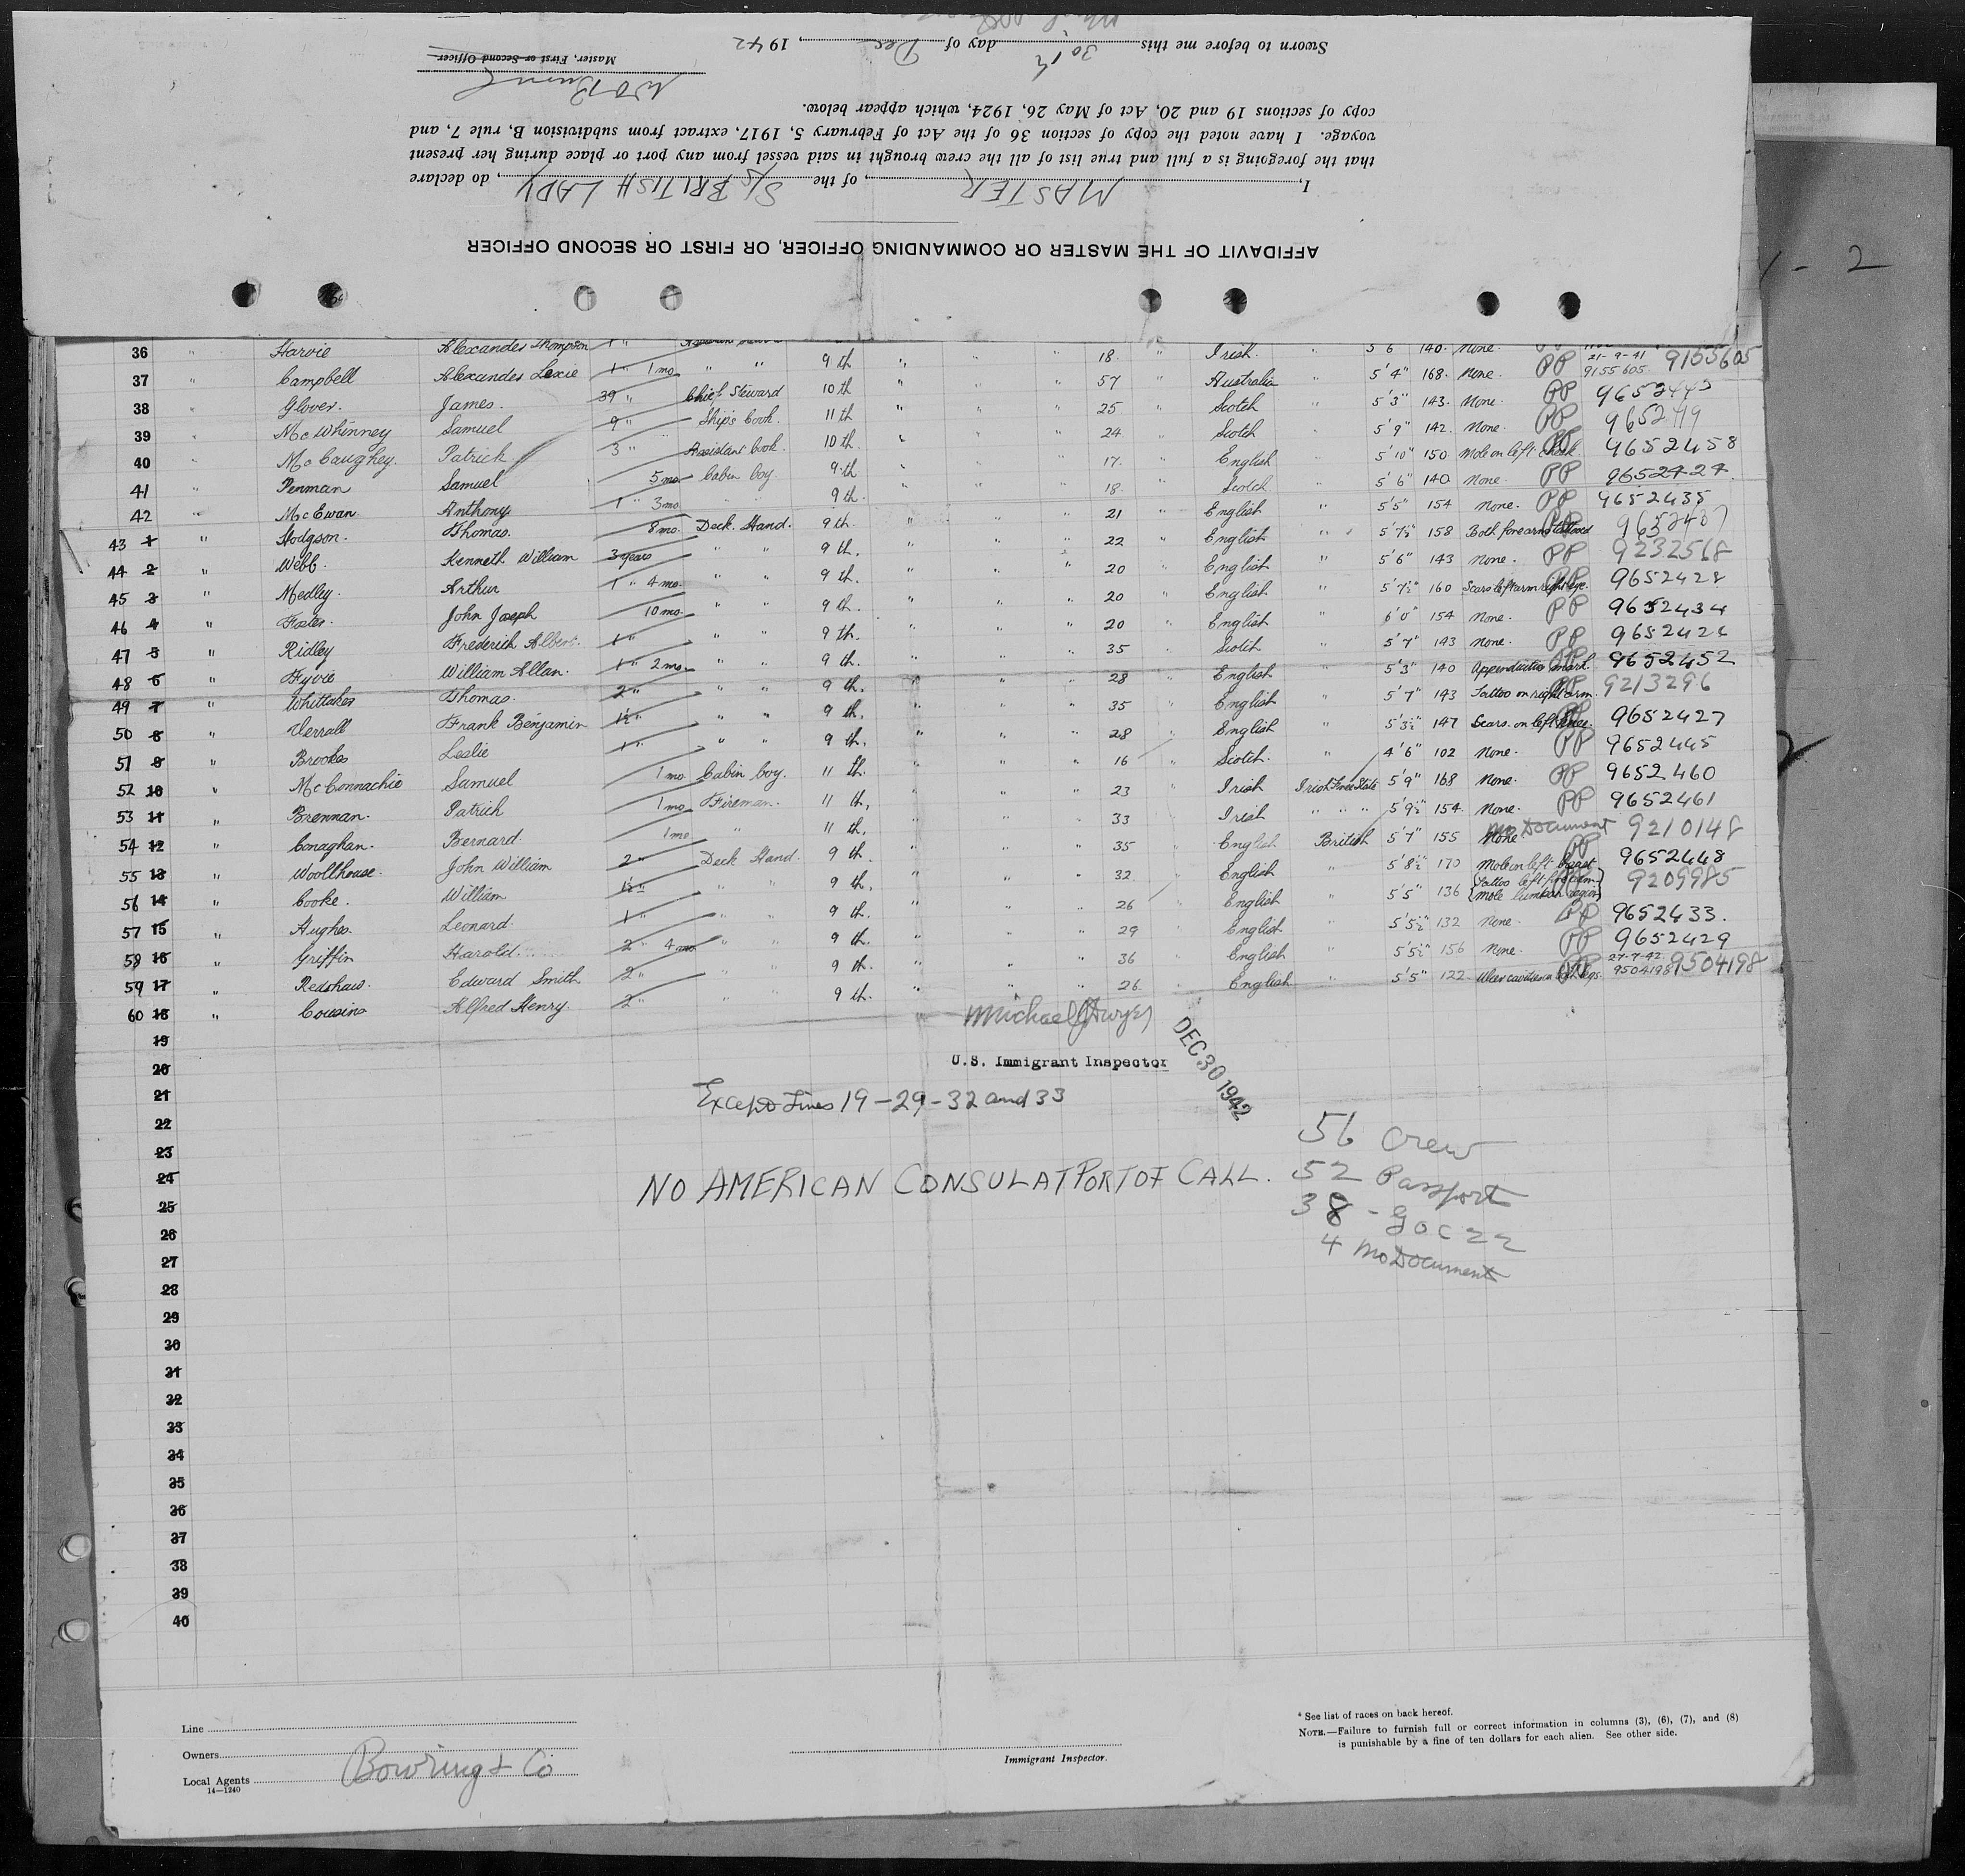 Sworn to before me this 30th day of Dec, 1942
Master, First or Second Officer
copy of sections 19 and 20, Act of May 26, 1924, which appear below.
voyage. I have noted the copy of section 36 of the Act of February 5, 1917, extract from subdivision B, rule 7, and
that the foregoing is a full and true list of all the crew brought in said vessel from any port or place during her present
I, MASTER, of the S/S BRITISH LADY, do declare
AFFIDAVIT OF THE MASTER OR COMMANDING OFFICER, OR FIRST OR SECOND OFFICER
36 " Harvie Alexander Thompson 1 " 9 th " " " 18 " Irish " 5 6 140 None. PP 21-9-41 9155605 9155605
37 " Campbell Alexander Lexie 1 " 1 mo " " 10 th " " " 57 " Australia " 5'4" 168 None. PP
38 " Glover. James. 39 " Chief Steward 11 th " " " 25 " Scotch " 5'3" 143 None. PP
39 " McWhinney Samuel 9 " Ships Cook. 10 th " " " 24 " Scotch " 5'9" 142 None. PP
40 " McCaughey. Patrick 3 " Assistant Cook. 9 th " " " 17 " English " 5'10" 150 Mole on left cheek PP 9652458
41 " Penman Samuel 5 mo Cabin boy 9 th " " " 18 " Scotch " 5'6" 140 None. PP
42 " McEwan Anthony 1 " 3 mo " " 9 th " " " 21 " English " 5'5" 154 None. PP 9652435
43 1 " Hodgson. Thomas. 8 mo. Deck Hand. 9 th. " " " 22 " English " 5'7½" 158 Both forearms tattooed PP
44 2 " Webb. Kenneth William 3 years " " 9 th. " " " 20 " English " 5'6" 143 None. PP 9232568
45 3 " Medley. Arthur 1 " 4 mo. " " 9 th. " " " 20 " English " 5'7½" 160 Scars left arm right eye. PP 9652428
46 4 " John Joseph 10 mo. " " 9 th. " " " 20 " English " 6'0" 154 None. PP 9652434
47 5 " Ridley Frederick Albert. 1 " " " 9 th. " " " 35 " Scotch " 5'7" 143 None. PP
48 6 " Fyvie William Allan. 1 " 2 mo " " 9 th. " " " 28 " English " 5'3" 140 Appendicitis mark. PP 9652452
49 7 " Whittaker Thomas. 2 " " " 9 th. " " " 35 " English " 5'7" 143 Tattoo on right arm. PP 9213296
50 8 " Verrall Frank Benjamin 1½ " " " 9 th. " " " 28 " English " 5'3½" 147 Scars. on left knee. PP 9652427
51 9 " Brookes Leslie 1 " " " 11 th. " " " 16 " Scotch. " 4'6" 102 None. PP 9652445
52 10 " McConnachie Samuel 1 mo. Cabin boy. 11 th. " " " 23 " Irish Irish Free State 5'9" 168 None. PP 9652460
53 11 " Brennan. Patrick 1 mo Fireman. 11 th. " " " 33 " Irish " " " 5'9½" 154 None. PP 9652461
54 12 " Conaghan. Bernard. 1 mo " 9 th. " " " 35 " English British 5'7" 155 None No Document 9210148
55 13 " Woollhouse. John William 2 " Deck Hand. 9 th. " " " 32 " English " 5'8½" 170 Mole on left breast PP 9652448
56 14 " Cooke. William 1½ " " " 9 th. " " " 26 " English " 5'5" 136 Tattoo left forearm mole lumbar region PP 9209985
57 15 " Hughes. Leonard. 1 " " " 9 th. " " " 29 " English " 5'5½" 132 None. PP 9652433.
58 16 " Griffin Harold. 2 " 4 mo " " 9 th. " " " 36 " English " 5'5½" 156 None. PP 9652429
59 17 " Redshaw. Edward Smith 2 " " " 9 th. " " " 26 " English " 5'5" 122 PP 27-7-42 9504198 9504198
60 18 " Cousins Alfred Henry. 2 " " " 9 th.
19
20 U.S. Immigrant Inspector DEC 30 1942
21 Except Lines 19-29-32 and 33
22 56 Crew
23 52 Passport
24 NO AMERICAN CONSUL AT PORT OF CALL.
25
26 4 No Document
27
28
29
30
31
32
33
34
35
36
37
38
39
40
Line
Owners
Local Agents Bowring & Co
14-1240
Immigrant Inspector.
* See list of races on back hereof.
NOTE.—Failure to furnish full or correct information in columns (3), (6), (7), and (8)
is punishable by a fine of ten dollars for each alien. See other side.